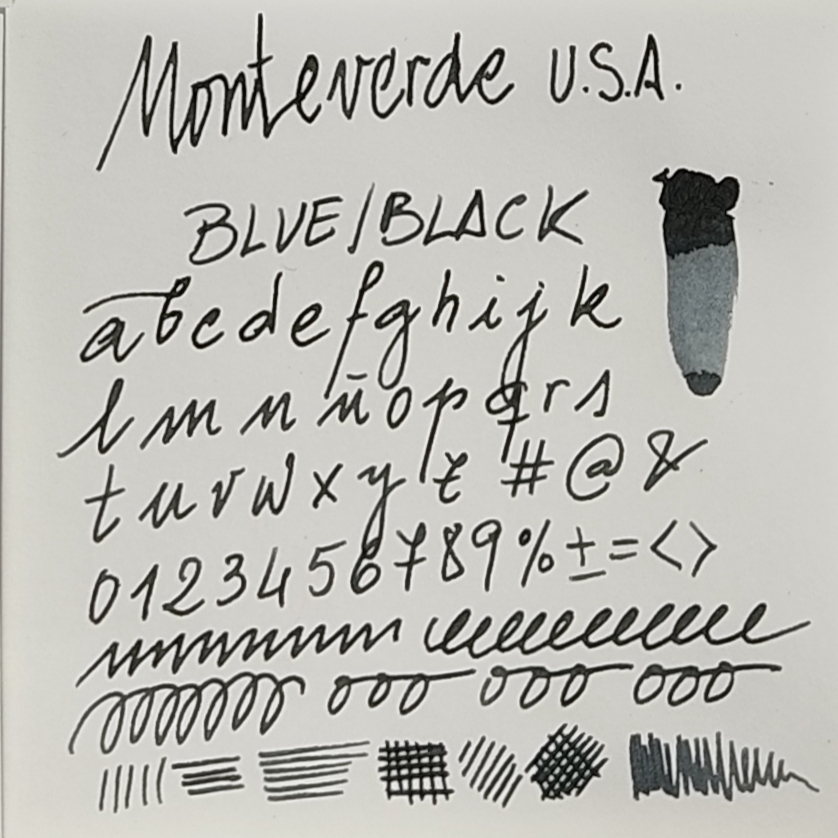 Monteverde U.S.A.
BLUE/BLACK
a b c d e f g h i j k
l m n ñ o p q r s
t u v w x y z # @ &
0 1 2 3 4 5 6 7 8 9 % ± = < >